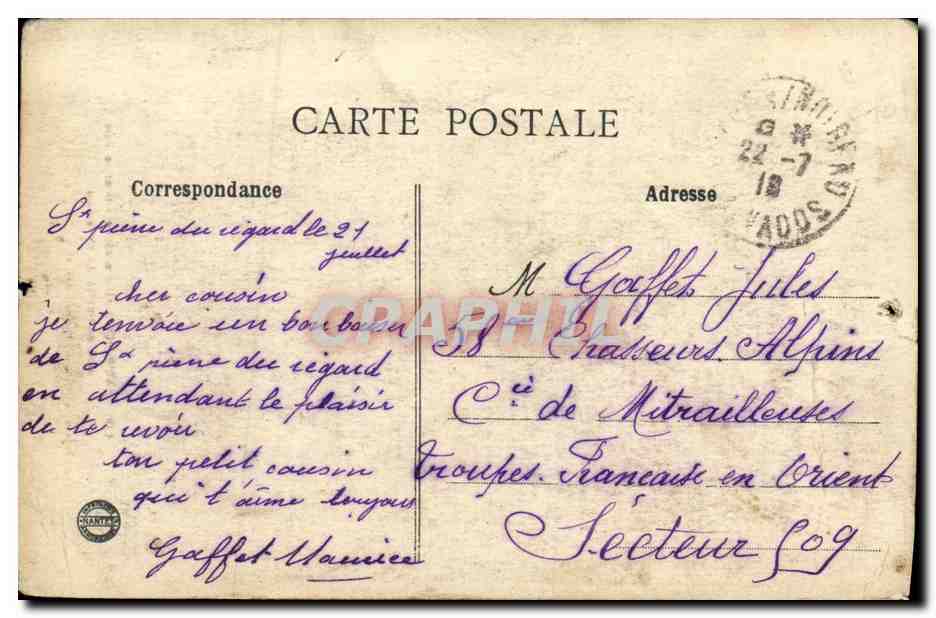 CARTE POSTALE
Correspondance
St pierre du regard le 21
juillet
cher cousin
je tenvoie un bon baiser
de St pierre du regard
en attendant le plaisir
de te revoir
ton petit cousin
qui t'aime toujours
Gaffet Maurice
NANTES
Adresse
22 -7
18
M Gaffet Jules
58eme Chasseurs Alpins
Cie de Mitrailleuses
troupes Française en Orient
Sécteur 509
CPAPHIL